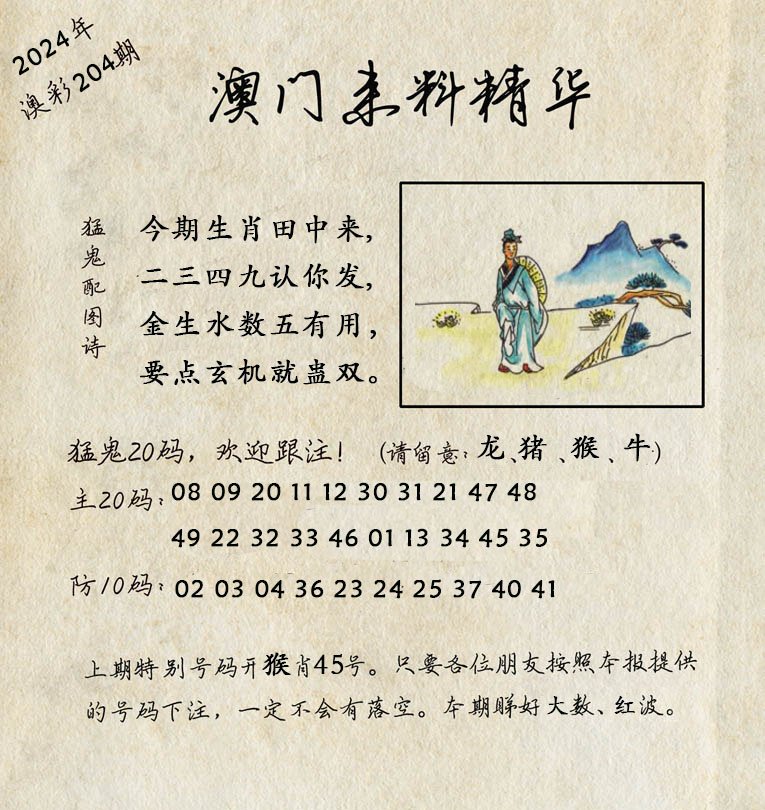 2024年
澳彩204期
澳门来料精华
猛鬼配图诗
今期生肖田中来，
二三四九认你发，
金生水数五有用，
要点玄机就蛊双。
猛鬼20码，欢迎跟注！（请留意：龙、猪、猴、牛）
主20码：08 09 20 11 12 30 31 21 47 48
49 22 32 33 46 01 13 34 45 35
防10码：02 03 04 36 23 24 25 37 40 41
上期特别号码开猴肖45号。只要各位朋友按照本报提供
的号码下注，一定不会有落空。本期睇好大数、红波。